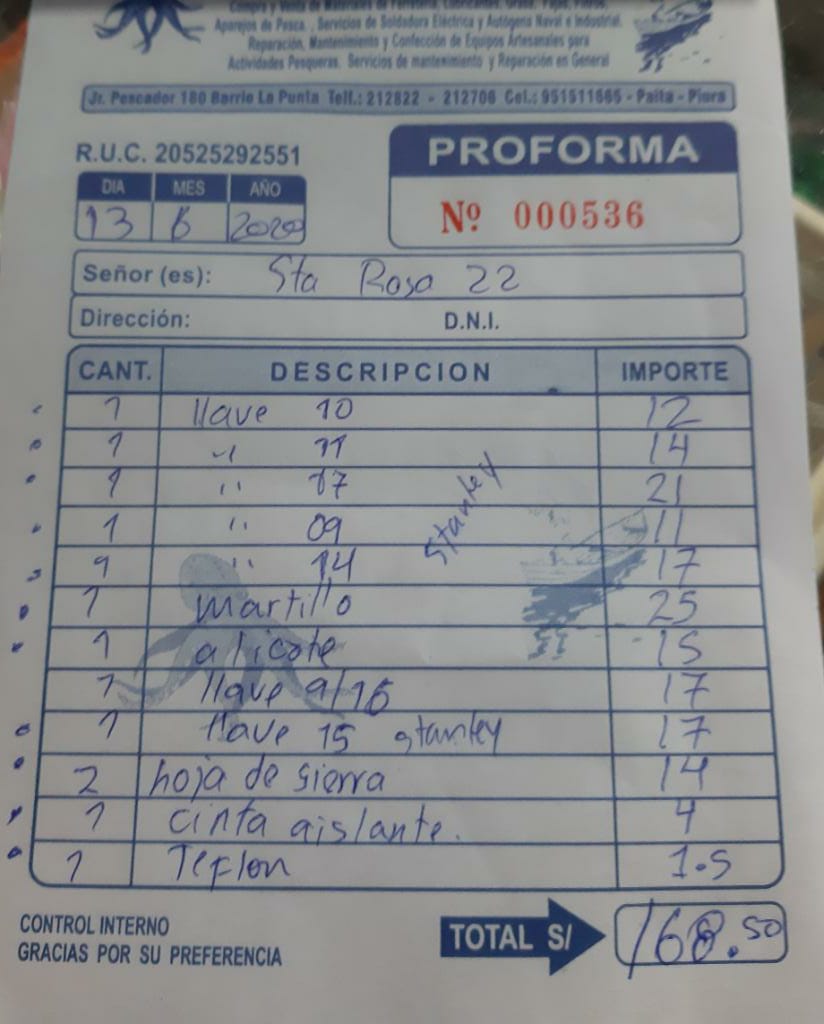 Compra y Venta de Materiales de Ferretería, Lubricantes, Grasa, Fajas, Filtros,
Aparejos de Pesca. , Servicios de Soldadora Eléctrica y Autógena Naval e Industrial,
Reparación, Mantenimiento y Confección de Equipos Artesanales para
Actividades Pesqueras. Servicios de mantenimiento y Reparación en General
Jr. Pescador 180 Barrio La Punta Telf.: 212822 - 212706 Cel.: 951511665 - Paita - Piura
R.U.C. 20525292551
PROFORMA
DIA MES AÑO
13 6 2020
Nº 000536
Señor (es): Sta Rosa 22
Dirección: D.N.I.
CANT. DESCRIPCION IMPORTE
1 llave 10 12
1 " 11 14
1 " 17 21
1 " 09 11
Stanley
1 " 14 17
1 martillo 25
1 alicate 15
1 llave 9/16 17
1 llave 15 stanley 17
2 hoja de sierra 14
1 cinta aislante. 4
1 Teflon 1.5
CONTROL INTERNO
GRACIAS POR SU PREFERENCIA
TOTAL S/ 168.50